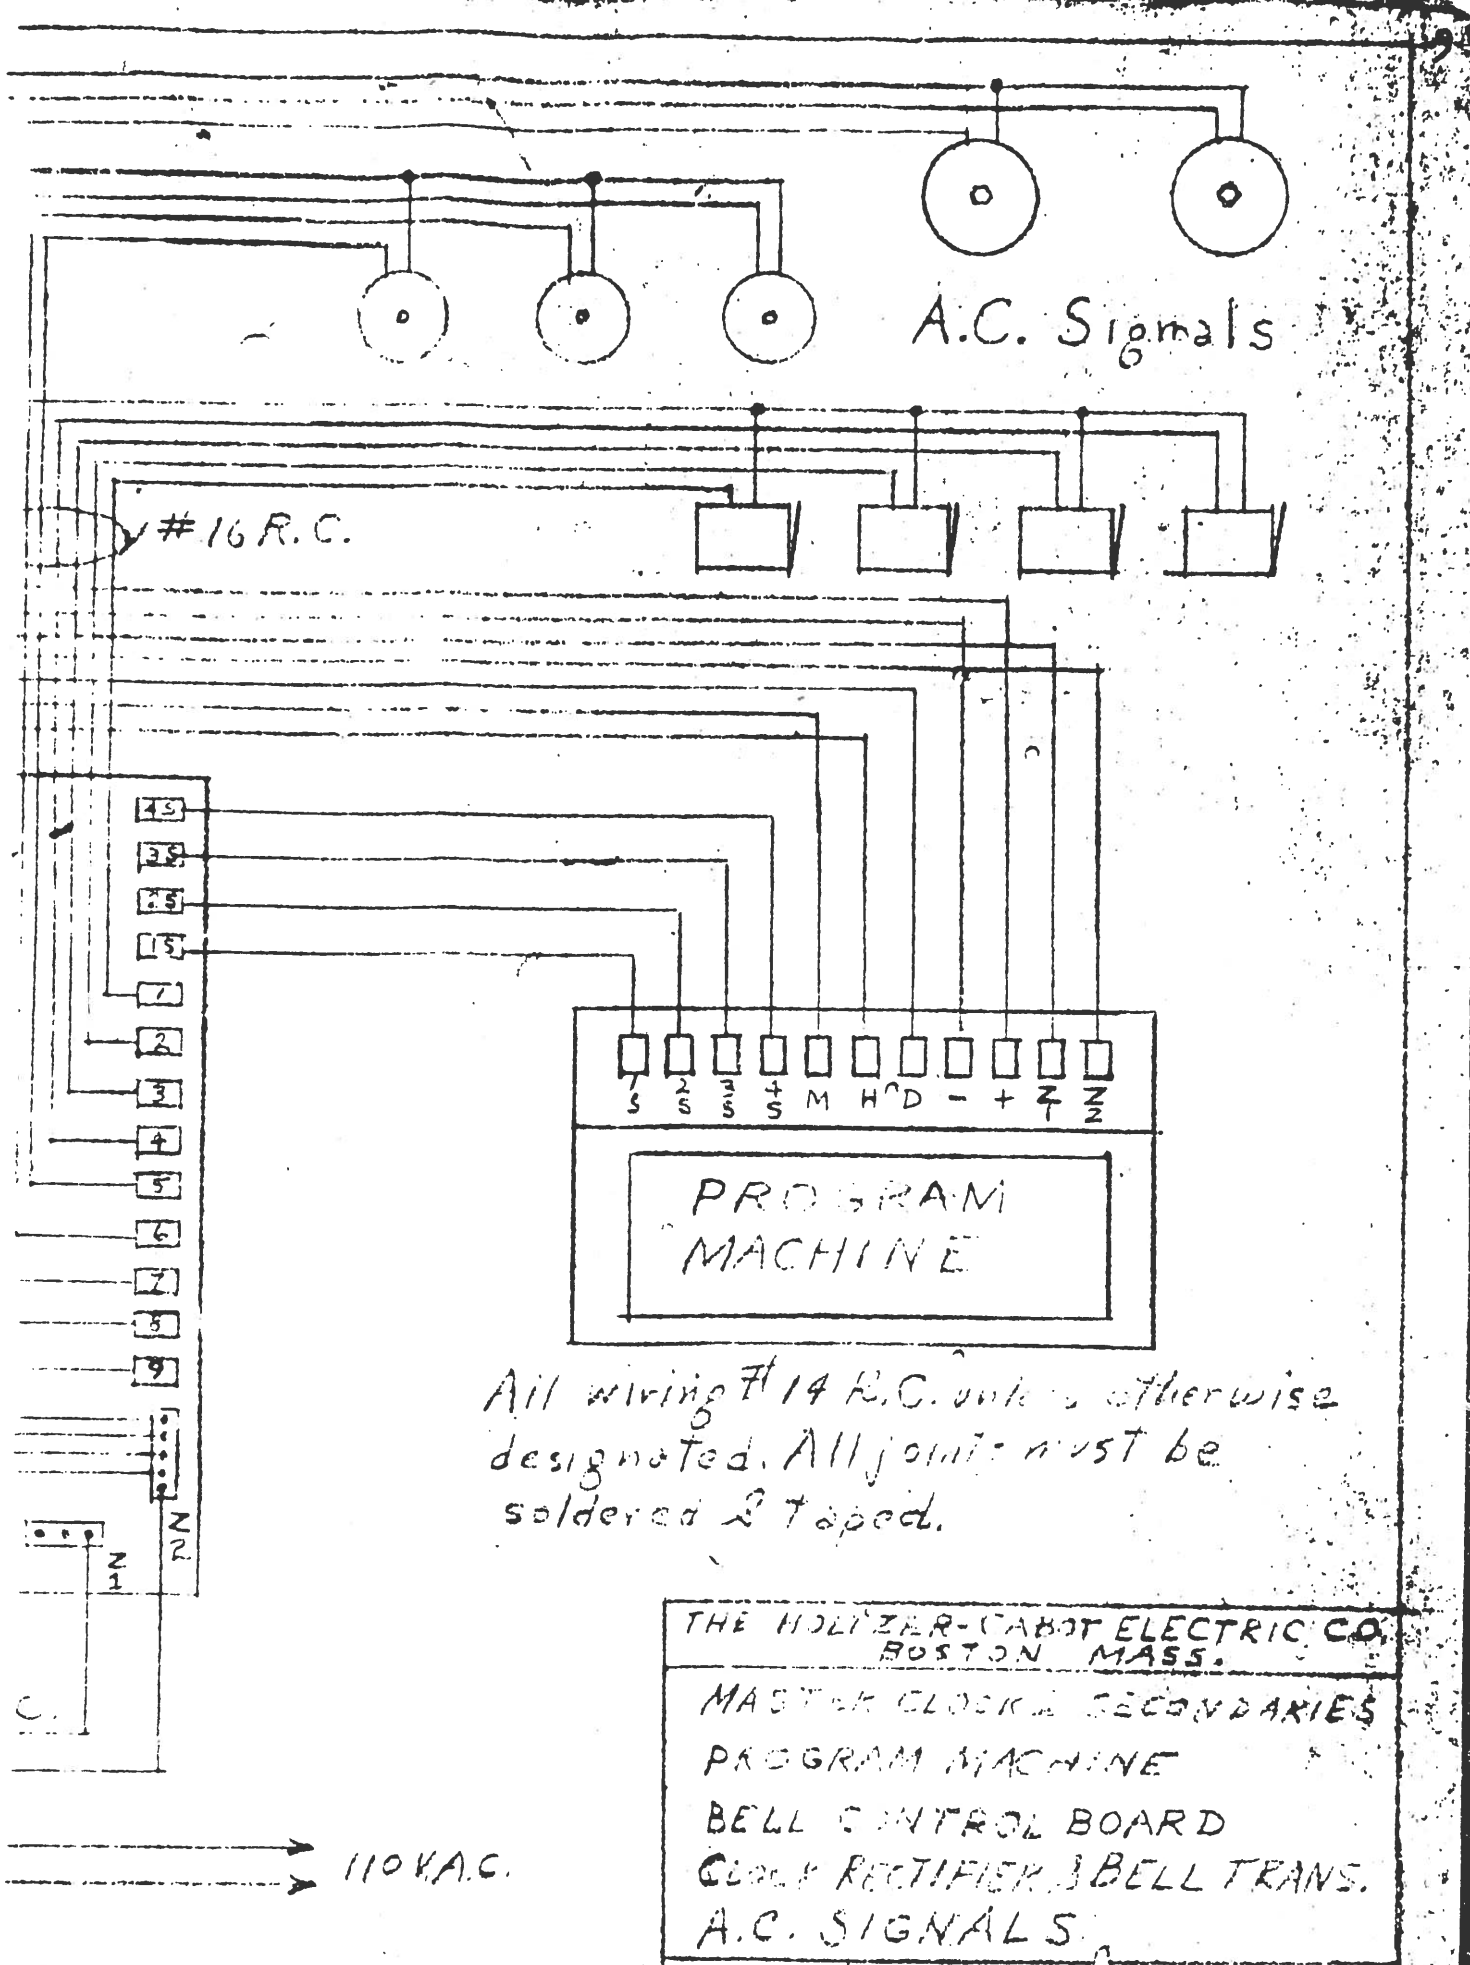 A.C. Sigmals
#16 R.C.
4S
3S
2S
1S
1
2
3
4
5
6
7
8
9
Z2
Z1
1S 2S 3S 4S M H D - + Z1 Z2
PROGRAM
MACHINE
All wiring #14 R.C. unless otherwise
designated. All joints must be
soldered & taped.
C.
110 V.A.C.
THE HOLTZER-CABOT ELECTRIC CO.
BOSTON MASS.
MASTER CLOCK & SECONDARIES
PROGRAM MACHINE
BELL CONTROL BOARD
CLOCK RECTIFIER & BELL TRANS.
A.C. SIGNALS